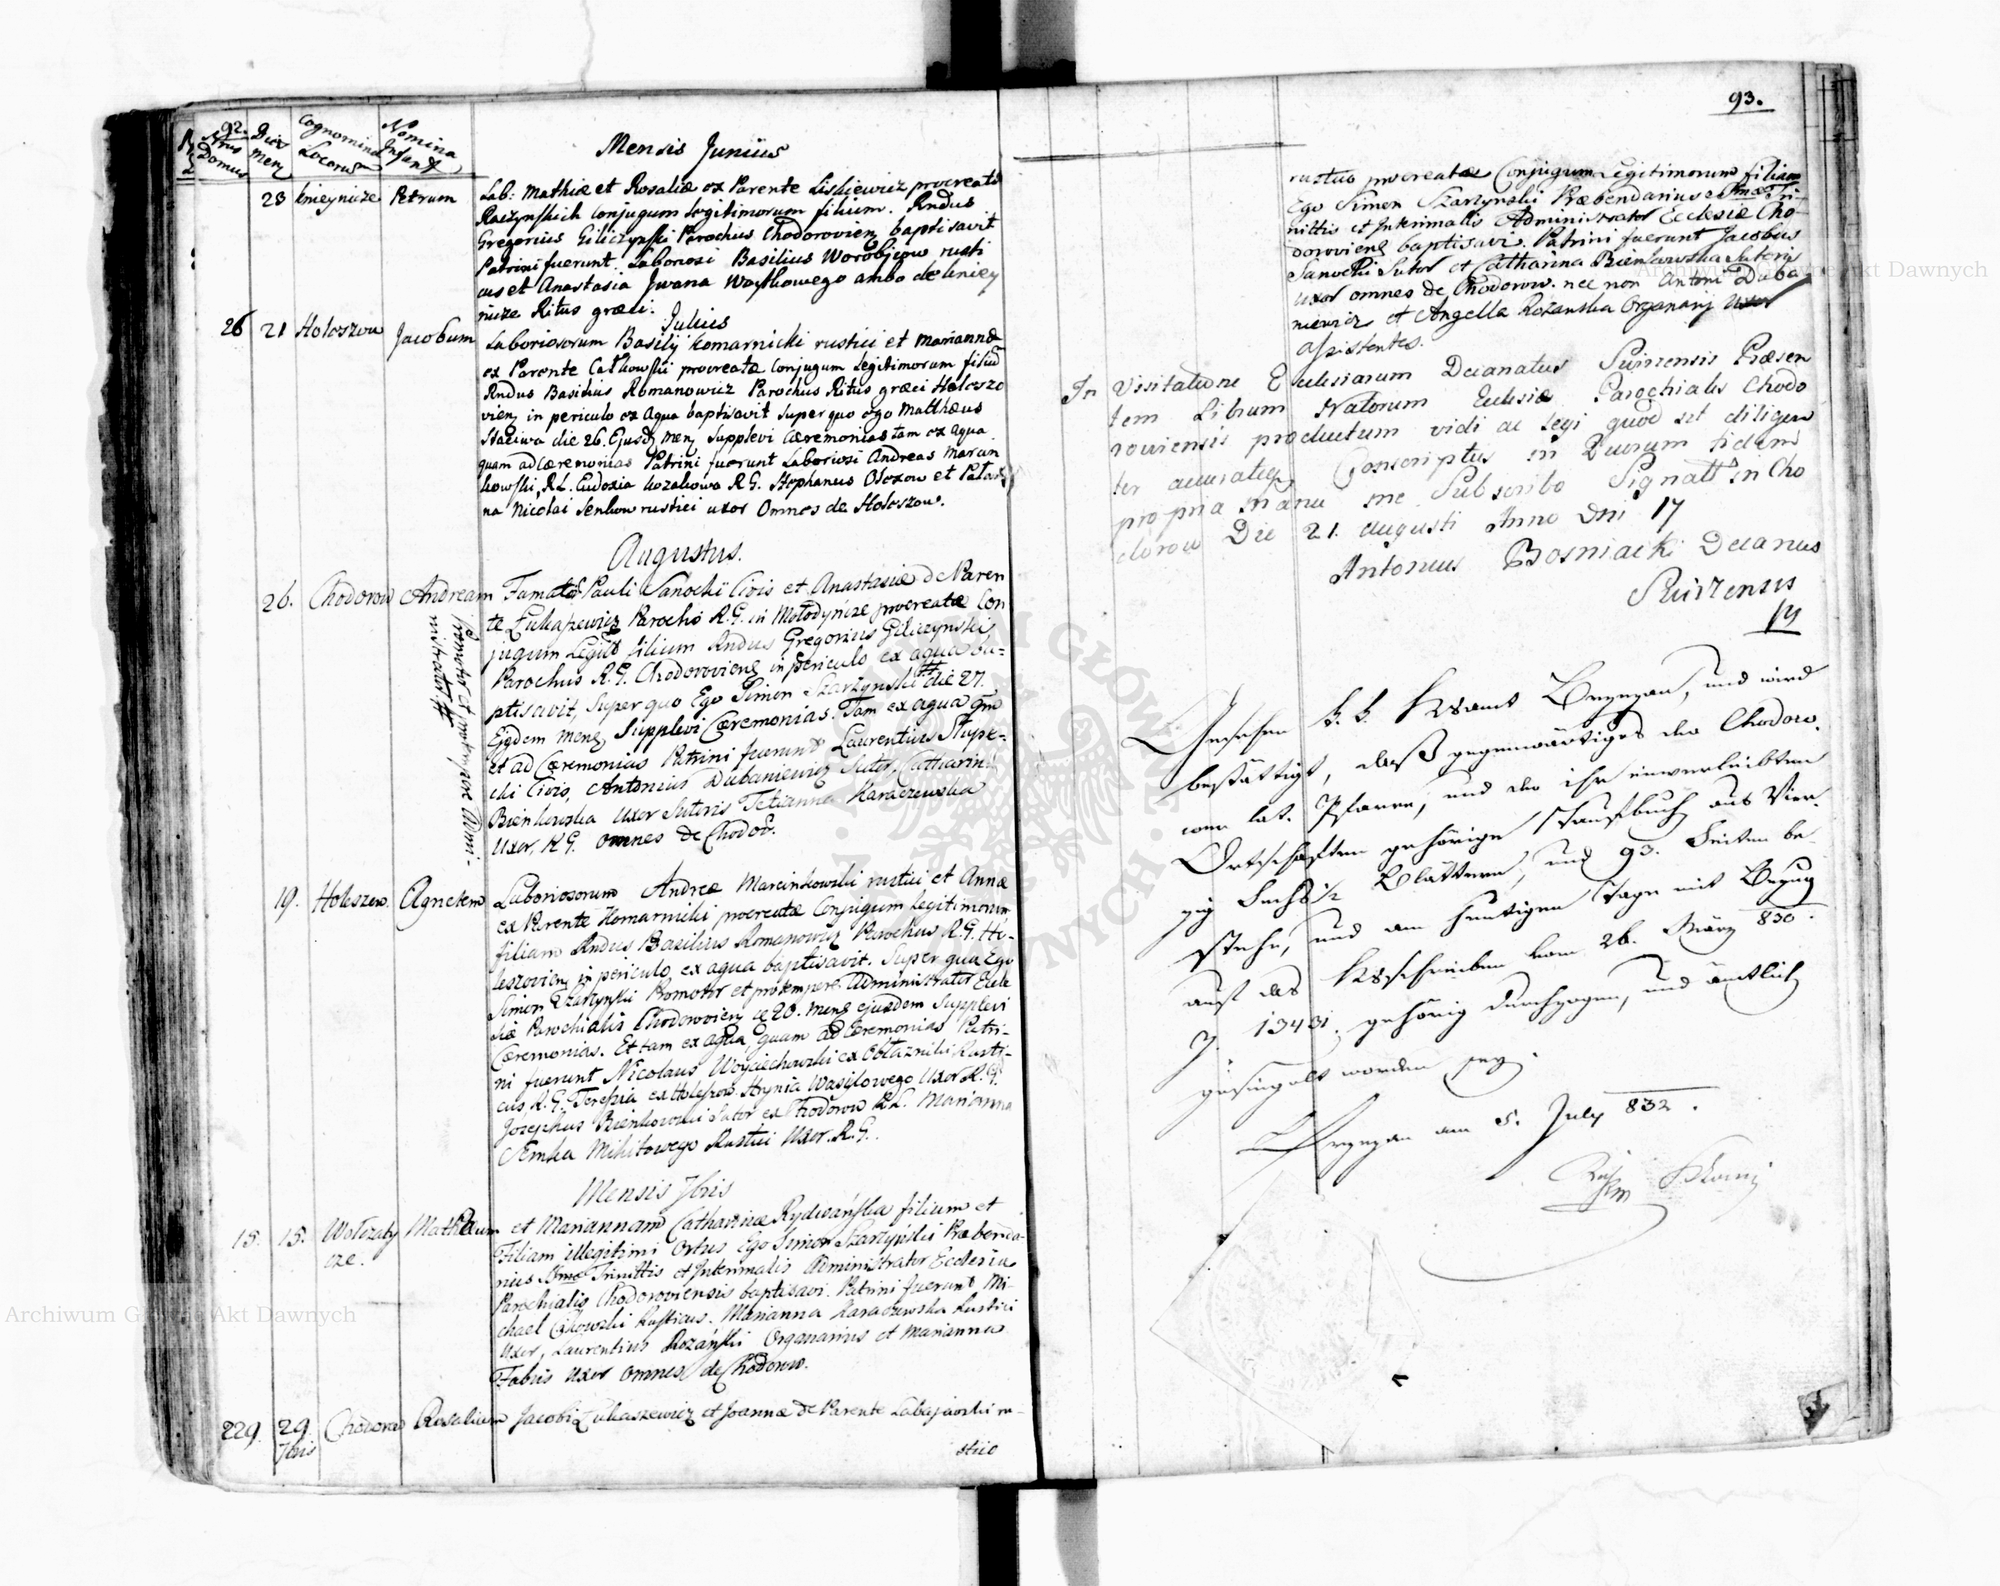 92.
Nrus Domus
Dies Menz
Cognomina Locorum
Nomina Infant
Mensis Junius
23 Knieynicze Petrum
Lab: Mathiæ et Rosaliæ ex Parente Liskiewicz procreatæ
Raczynskich Conjugum legitimorum filium. Rndus
Gregorius Giliczynski Parochus Chodorovienz baptisavit
Patrini fuerunt Laboriosi Basilius Worobijow rusti
cus et Anastasia Jwana Woytkowego ambo de Kniey
nicze Ritus græci.
Julius
26 21 Holeszow Jacobum
Laboriosorum Basilij Komarnicki rustici et Mariannæ
ex Parente Catkowski procreatæ Conjugum legitimorum filiū
Rndus Basilius Romanowicz Parochus Ritus græci Holeszo
vienz in periculo ex Aqua baptisavit super quo ego Matthæus
Staciwa die 26. Ejusdz menz supplevi Cæremonias tam ex aqua
quam ad Cæremonias Patrini fuerunt Laboriosi Andreas Marcin
kowski, R.L. Eudoxia Kozakowa R.G. Stephanus Olexow et Patas
na Nicolai Senkow rustici uxor Omnes de Holeszow.
Augustus.
26. Chodorow Andream
Famatd Pauli Sanocki Civis et Anastasiæ de Paren
te Łukaszewicz Parocho R.G. in Mołodyńcze procreatæ Con
jugum Legitd filium Rndus Gregorius Giliczynski
Parochus R.G. Chodorovienz in periculo ex aqua ba=
ptisavit, super quo Ego Simon Skarżynski # die 27.
Ejqdem menz Supplevi Cæremonias. Tam ex aqua qm
et ad Cæremonias Patrini fuerunt Laurentius Słupe=
cki Civis, Antonius Dubaniewicz Sutor, Catharina
Bieńkowska Uxor Sutoris Tetianna Karaczewska
Uxor, R.G. omnes de Chodod.
Promotor et protempore Admi-
nistrator #
19. Holeszow. Agnetem
Laboriosorum Andreæ Marcinkowski rustici et Annæ
ex Parente Komarnicki procreatæ Conjugum legitimorum
filiam Rndus Basilius Romanowicz Parochus R.G. Ho-
leszovienz in periculo ex aqua baptisavit. Super qua Ego
Simon Skarżynski Promotor et protempore Administrator Eccle
siæ Parochialis Chodorovienz de 20. menz ejusdem supplevi
Cæremonias. Et tam ex aqua, quam ad Cæremonias Patri-
ni fuerunt Nicolaus Woyciechowski ex Obłaznibi Rusti-
cus, R.G. Teressia ex Holeszow Hrynia Wasylowego Uxor R.G.
Josephus Bieńkowski Sutor ex Chodorow R.L. Marianna
Semka Mikitowego Rustici Uxor. R.G.
Mensis 7bris
15. 15. Wołczaty
cze. Mathæum
et Mariannam Catharinæ Rydwańska filium et
Filiam illegitimi Ortus Ego Simon Skarżyński Præbenda-
rius SSmæ Trinittis et Interimalis Administrator Ecclesiæ
Parochialis Chodoroviensis baptisavi. Patrini fuerunt Mi-
chael Cikowski Rusticus. Marianna Karaczewska Rustici
Uxor, Laurentius Rożański Organarius et Marianna
Fabris uxor omnes de Chodorow.
229. 29. 7bris Chodorow Rosaliam
Jacobi Łukaszewicz et Joannæ de Parente Labajowski ru-
stico
93.
rustico procreatæ Conjugum Legitimorum filiam
Ego Simon Skarżynski Præbendarius SSmæ Tri-
nittis et Interimalis Administrator Ecclesiæ Cho-
doroviens baptisavi. Patrini fuerunt Jacobus
Sanocki Sutor et Catharina Bieńkowska Sutoris
uxor omnes de Chodorow. nec non Antoni Duba
niewicz et Angella Rożanska Organarij Uxor
assistentes.
In Visitatione Ecclesiarum Decanatus Præsen
tem Librum Natorum Ecclesiæ Parochialis Chodo
roviensis productum vidi ac legi quod sit diligen
ter accurateqz Conscriptus in Quorum fidem
propria manu me Subscribo Signatt in Cho
dorow Die 21. augusti Anno Dni 17
Antonius Bosniacki Decanus
19
Gesehen k.k. Kreisamt Brzezan, und wird
bestättigt, daß gegenwärtiges der Chodoro,
wer lat. Pfarre, und der ihr einverleibten
Ortschaften gehörige Taufbuch aus Vier,
zig Sechs ½ Blättern, und 93. Seiten be-
stehe, und am heutigen Tage mit Bezug
auf das Kreisschreiben vom 26. März 830.
Z. 13431. gehörig durchzogen, und ämtlich
gesiegelt worden sey.
Brzezan am 5. July 832.
Archiwum Główne Akt Dawnych
Archiwum Główne Akt Dawnych